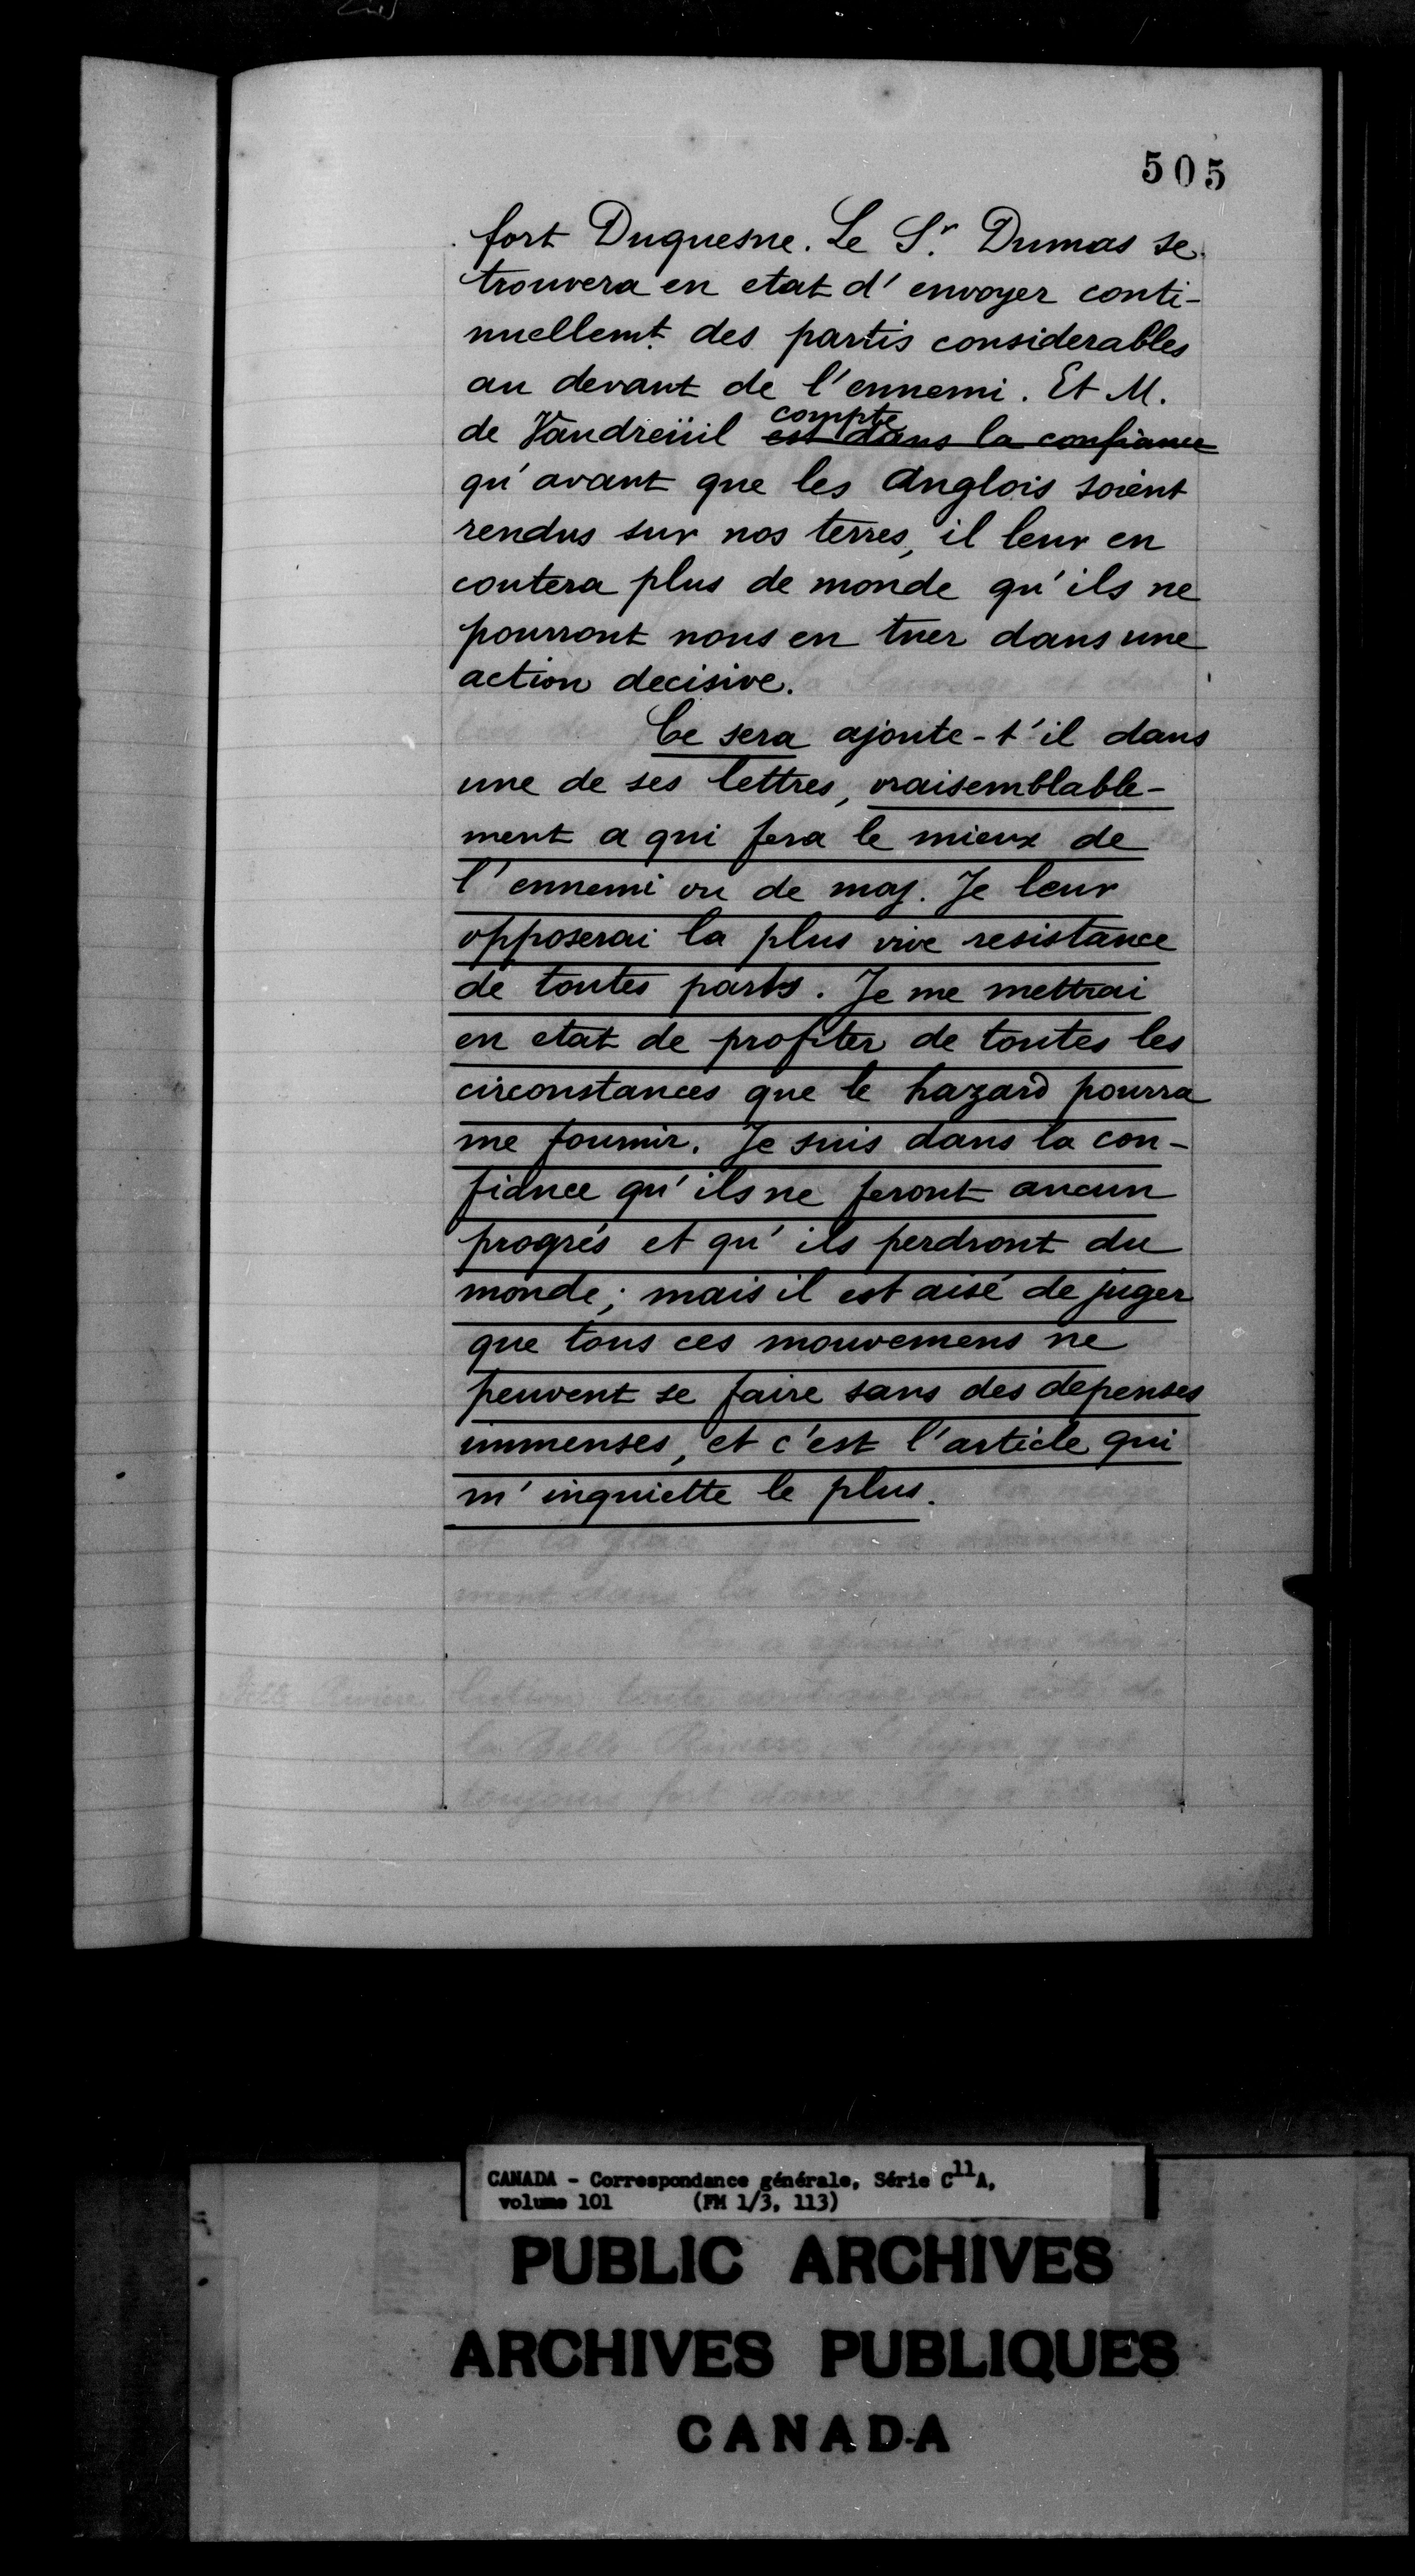 505
fort Duquesne. Le Sr. Dumas se
trouvera en etat d'envoyer conti-
nuellemt. des partis considerables
au devant de l'ennemi. Et M.
compte
de Vaudreüil est dans la confiance
qu'avant que les Anglois soient
rendus sur nos terres, il leur en
coutera plus de monde qu'ils ne
pourront nous en tuer dans une
action decisive.
Ce sera ajoute-t'il dans
une de ses lettres, vraisemblable-
ment a qui fera le mieux de
l'ennemi ou de moy. Je leur
opposerai la plus vive resistance
de toutes parts. Je me mettrai
en etat de profiter de toutes les
circonstances que le hazard pourra
me fournir. Je suis dans la con-
fiance qu'ils ne feront aucun
progrés et qu'ils perdront du
monde; mais il est aisé de juger
que tous ces mouvemens ne
peuvent se faire sans des depenses
immenses, et c'est l'article qui
m'inquiette le plus.
CANADA - Correspondance générale, Série C11A,
volume 101 (FM 1/3, 113)
PUBLIC ARCHIVES
ARCHIVES PUBLIQUES
CANADA